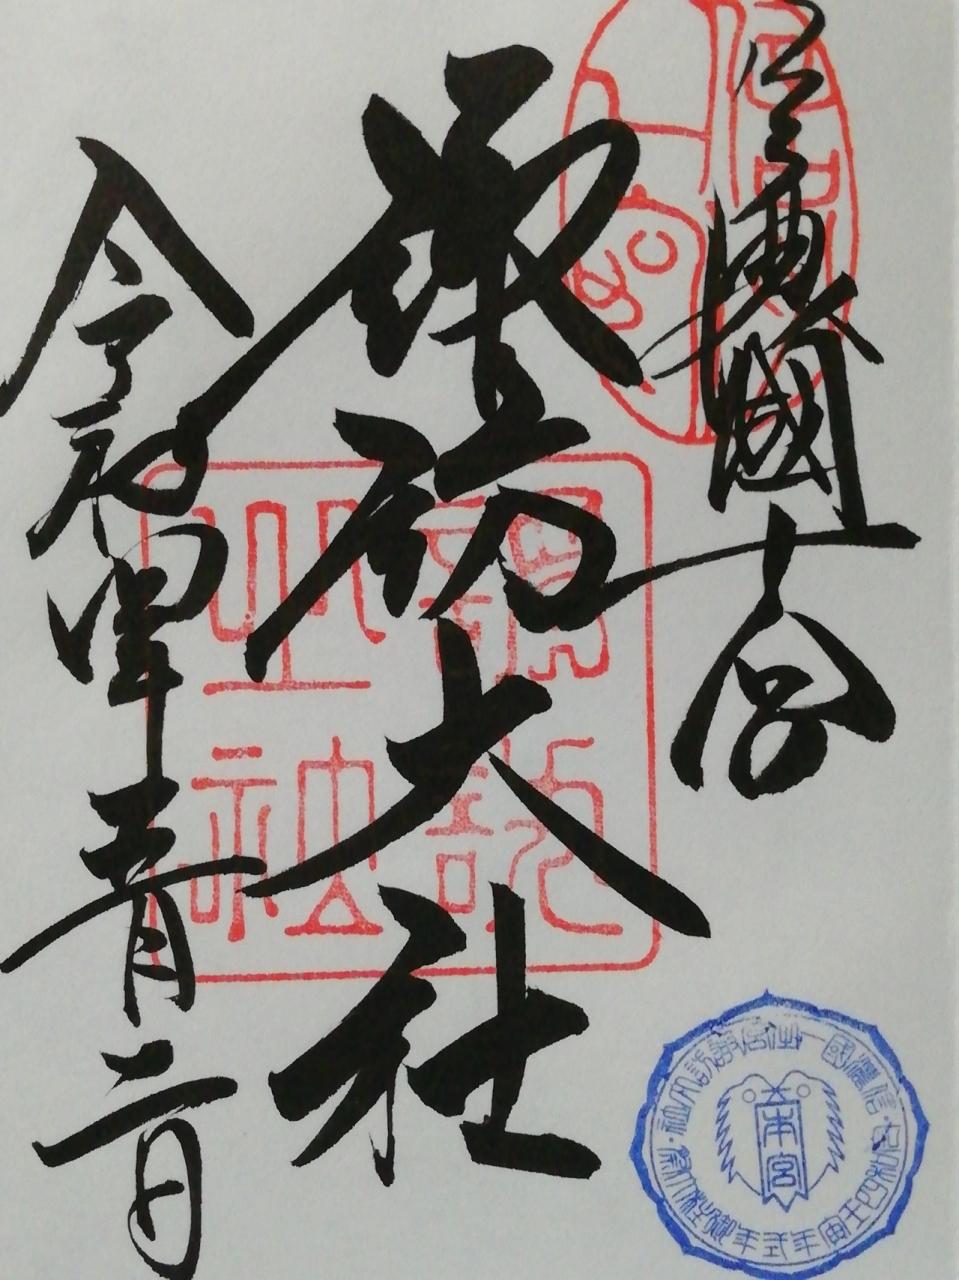 信濃國一之宮
諏訪大社
令和四年五月二日
信濃國一之宮諏訪大社
本宮
令和四壬寅年式年御柱大祭